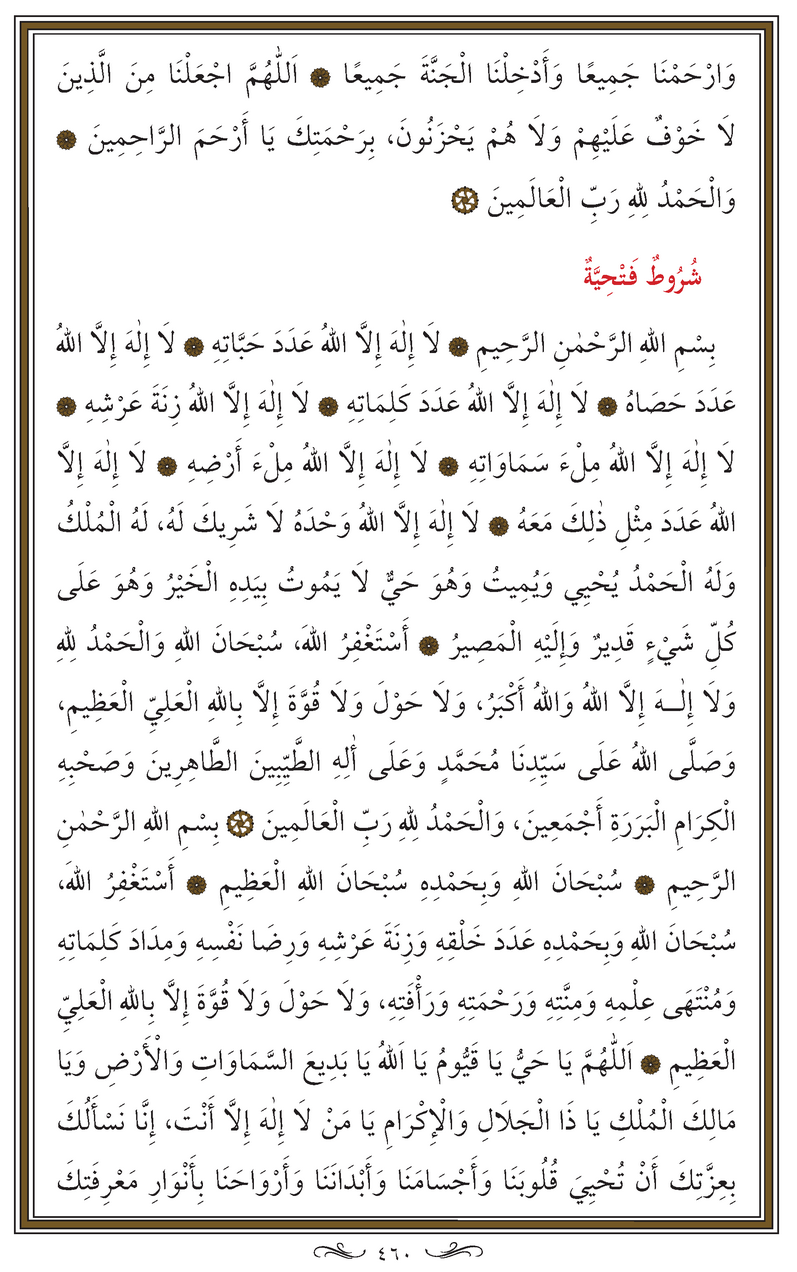 وَارْحَمْنَا جَمِيعًا وَأَدْخِلْنَا الْجَنَّةَ جَمِيعًا ۞ اَللّٰهُمَّ اجْعَلْنَا مِنَ الَّذِينَ
لَا خَوْفٌ عَلَيْهِمْ وَلَا هُمْ يَحْزَنُونَ، بِرَحْمَتِكَ يَا أَرْحَمَ الرَّاحِمِينَ ۞
وَالْحَمْدُ لِلهِ رَبِّ الْعَالَمِينَ ۞
شُرُوطٌ فَتْحِيَّةٌ
بِسْمِ اللهِ الرَّحْمٰنِ الرَّحِيمِ ۞ لَا إِلٰهَ إِلَّا اللهُ عَدَدَ حَبَّاتِهِ ۞ لَا إِلٰهَ إِلَّا اللهُ
عَدَدَ حَصَاهُ ۞ لَا إِلٰهَ إِلَّا اللهُ عَدَدَ كَلِمَاتِهِ ۞ لَا إِلٰهَ إِلَّا اللهُ زِنَةَ عَرْشِهِ ۞
لَا إِلٰهَ إِلَّا اللهُ مِلْءَ سَمَاوَاتِهِ ۞ لَا إِلٰهَ إِلَّا اللهُ مِلْءَ أَرْضِهِ ۞ لَا إِلٰهَ إِلَّا
اللهُ عَدَدَ مِثْلِ ذٰلِكَ مَعَهُ ۞ لَا إِلٰهَ إِلَّا اللهُ وَحْدَهُ لَا شَرِيكَ لَهُ، لَهُ الْمُلْكُ
وَلَهُ الْحَمْدُ يُحْيِي وَيُمِيتُ وَهُوَ حَيٌّ لَا يَمُوتُ بِيَدِهِ الْخَيْرُ وَهُوَ عَلَى
كُلِّ شَيْءٍ قَدِيرٌ وَإِلَيْهِ الْمَصِيرُ ۞ أَسْتَغْفِرُ اللهَ، سُبْحَانَ اللهِ وَالْحَمْدُ لِلهِ
وَلَا إِلٰـهَ إِلَّا اللهُ وَاللهُ أَكْبَرُ، وَلَا حَوْلَ وَلَا قُوَّةَ إِلَّا بِاللهِ الْعَلِيِّ الْعَظِيمِ،
وَصَلَّى اللهُ عَلَى سَيِّدِنَا مُحَمَّدٍ وَعَلَى أٰلِهِ الطَّيِّبِينَ الطَّاهِرِينَ وَصَحْبِهِ
الْكِرَامِ الْبَرَرَةِ أَجْمَعِينَ، وَالْحَمْدُ لِلهِ رَبِّ الْعَالَمِينَ ۞ بِسْمِ اللهِ الرَّحْمٰنِ
الرَّحِيمِ ۞ سُبْحَانَ اللهِ وَبِحَمْدِهِ سُبْحَانَ اللهِ الْعَظِيمِ ۞ أَسْتَغْفِرُ اللهَ،
سُبْحَانَ اللهِ وَبِحَمْدِهِ عَدَدَ خَلْقِهِ وَزِنَةَ عَرْشِهِ وَرِضَا نَفْسِهِ وَمِدَادَ كَلِمَاتِهِ
وَمُنْتَهَى عِلْمِهِ وَمِنَّتِهِ وَرَحْمَتِهِ وَرَأْفَتِهِ، وَلَا حَوْلَ وَلَا قُوَّةَ إِلَّا بِاللهِ الْعَلِيِّ
الْعَظِيمِ ۞ اَللّٰهُمَّ يَا حَيُّ يَا قَيُّومُ يَا اَللهُ يَا بَدِيعَ السَّمَاوَاتِ وَالْأَرْضِ وَيَا
مَالِكَ الْمُلْكِ يَا ذَا الْجَلَالِ وَالْإِكْرَامِ يَا مَنْ لَا إِلٰهَ إِلَّا أَنْتَ، إِنَّا نَسْأَلُكَ
بِعِزَّتِكَ أَنْ تُحْيِيَ قُلُوبَنَا وَأَجْسَامَنَا وَأَبْدَانَنَا وَأَرْوَاحَنَا بِأَنْوَارِ مَعْرِفَتِكَ
٤٦٠